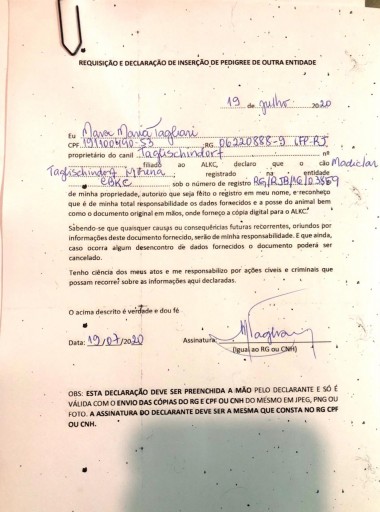 REQUISIÇÃO E DECLARAÇÃO DE INSERÇÃO DE PEDIGREE DE OUTRA ENTIDADE
19 de julho 2020
Eu Maria Tagliari
CPF. RG. 06220888-9 IFP-RJ
proprietário do canil Taglischindorf nº
filiado ao ALKC, declaro que o cão
Taglischindorf registrado na entidade
CBKC sob o número de registro
de minha propriedade, autorizo que seja feito o registro em meu nome, e reconheço
que é de minha total responsabilidade os dados fornecidos e a posse do animal bem
como o documento original em mãos, onde forneço a cópia digital para o ALKC.
Sabendo-se que quaisquer causas ou consequências futuras recorrentes, oriundos por
informações deste documento fornecido, serão de minha responsabilidade. E que ainda,
caso ocorra algum desencontro de dados fornecidos o documento poderá ser
cancelado.
Tenho ciência dos meus atos e me responsabilizo por ações cíveis e criminais que
possam recorrer sobre as informações aqui declaradas.
O acima descrito é verdade e dou fé
Data: 19/07/2020 Assinatura:
(Igual ao RG ou CNH)
OBS: ESTA DECLARAÇÃO DEVE SER PREENCHIDA A MÃO PELO DECLARANTE E SÓ É
VÁLIDA COM O ENVIO DAS CÓPIAS DO RG E CPF OU CNH DO MESMO EM JPEG, PNG OU
FOTO. A ASSINATURA DO DECLARANTE DEVE SER A MESMA QUE CONSTA NO RG CPF
OU CNH.